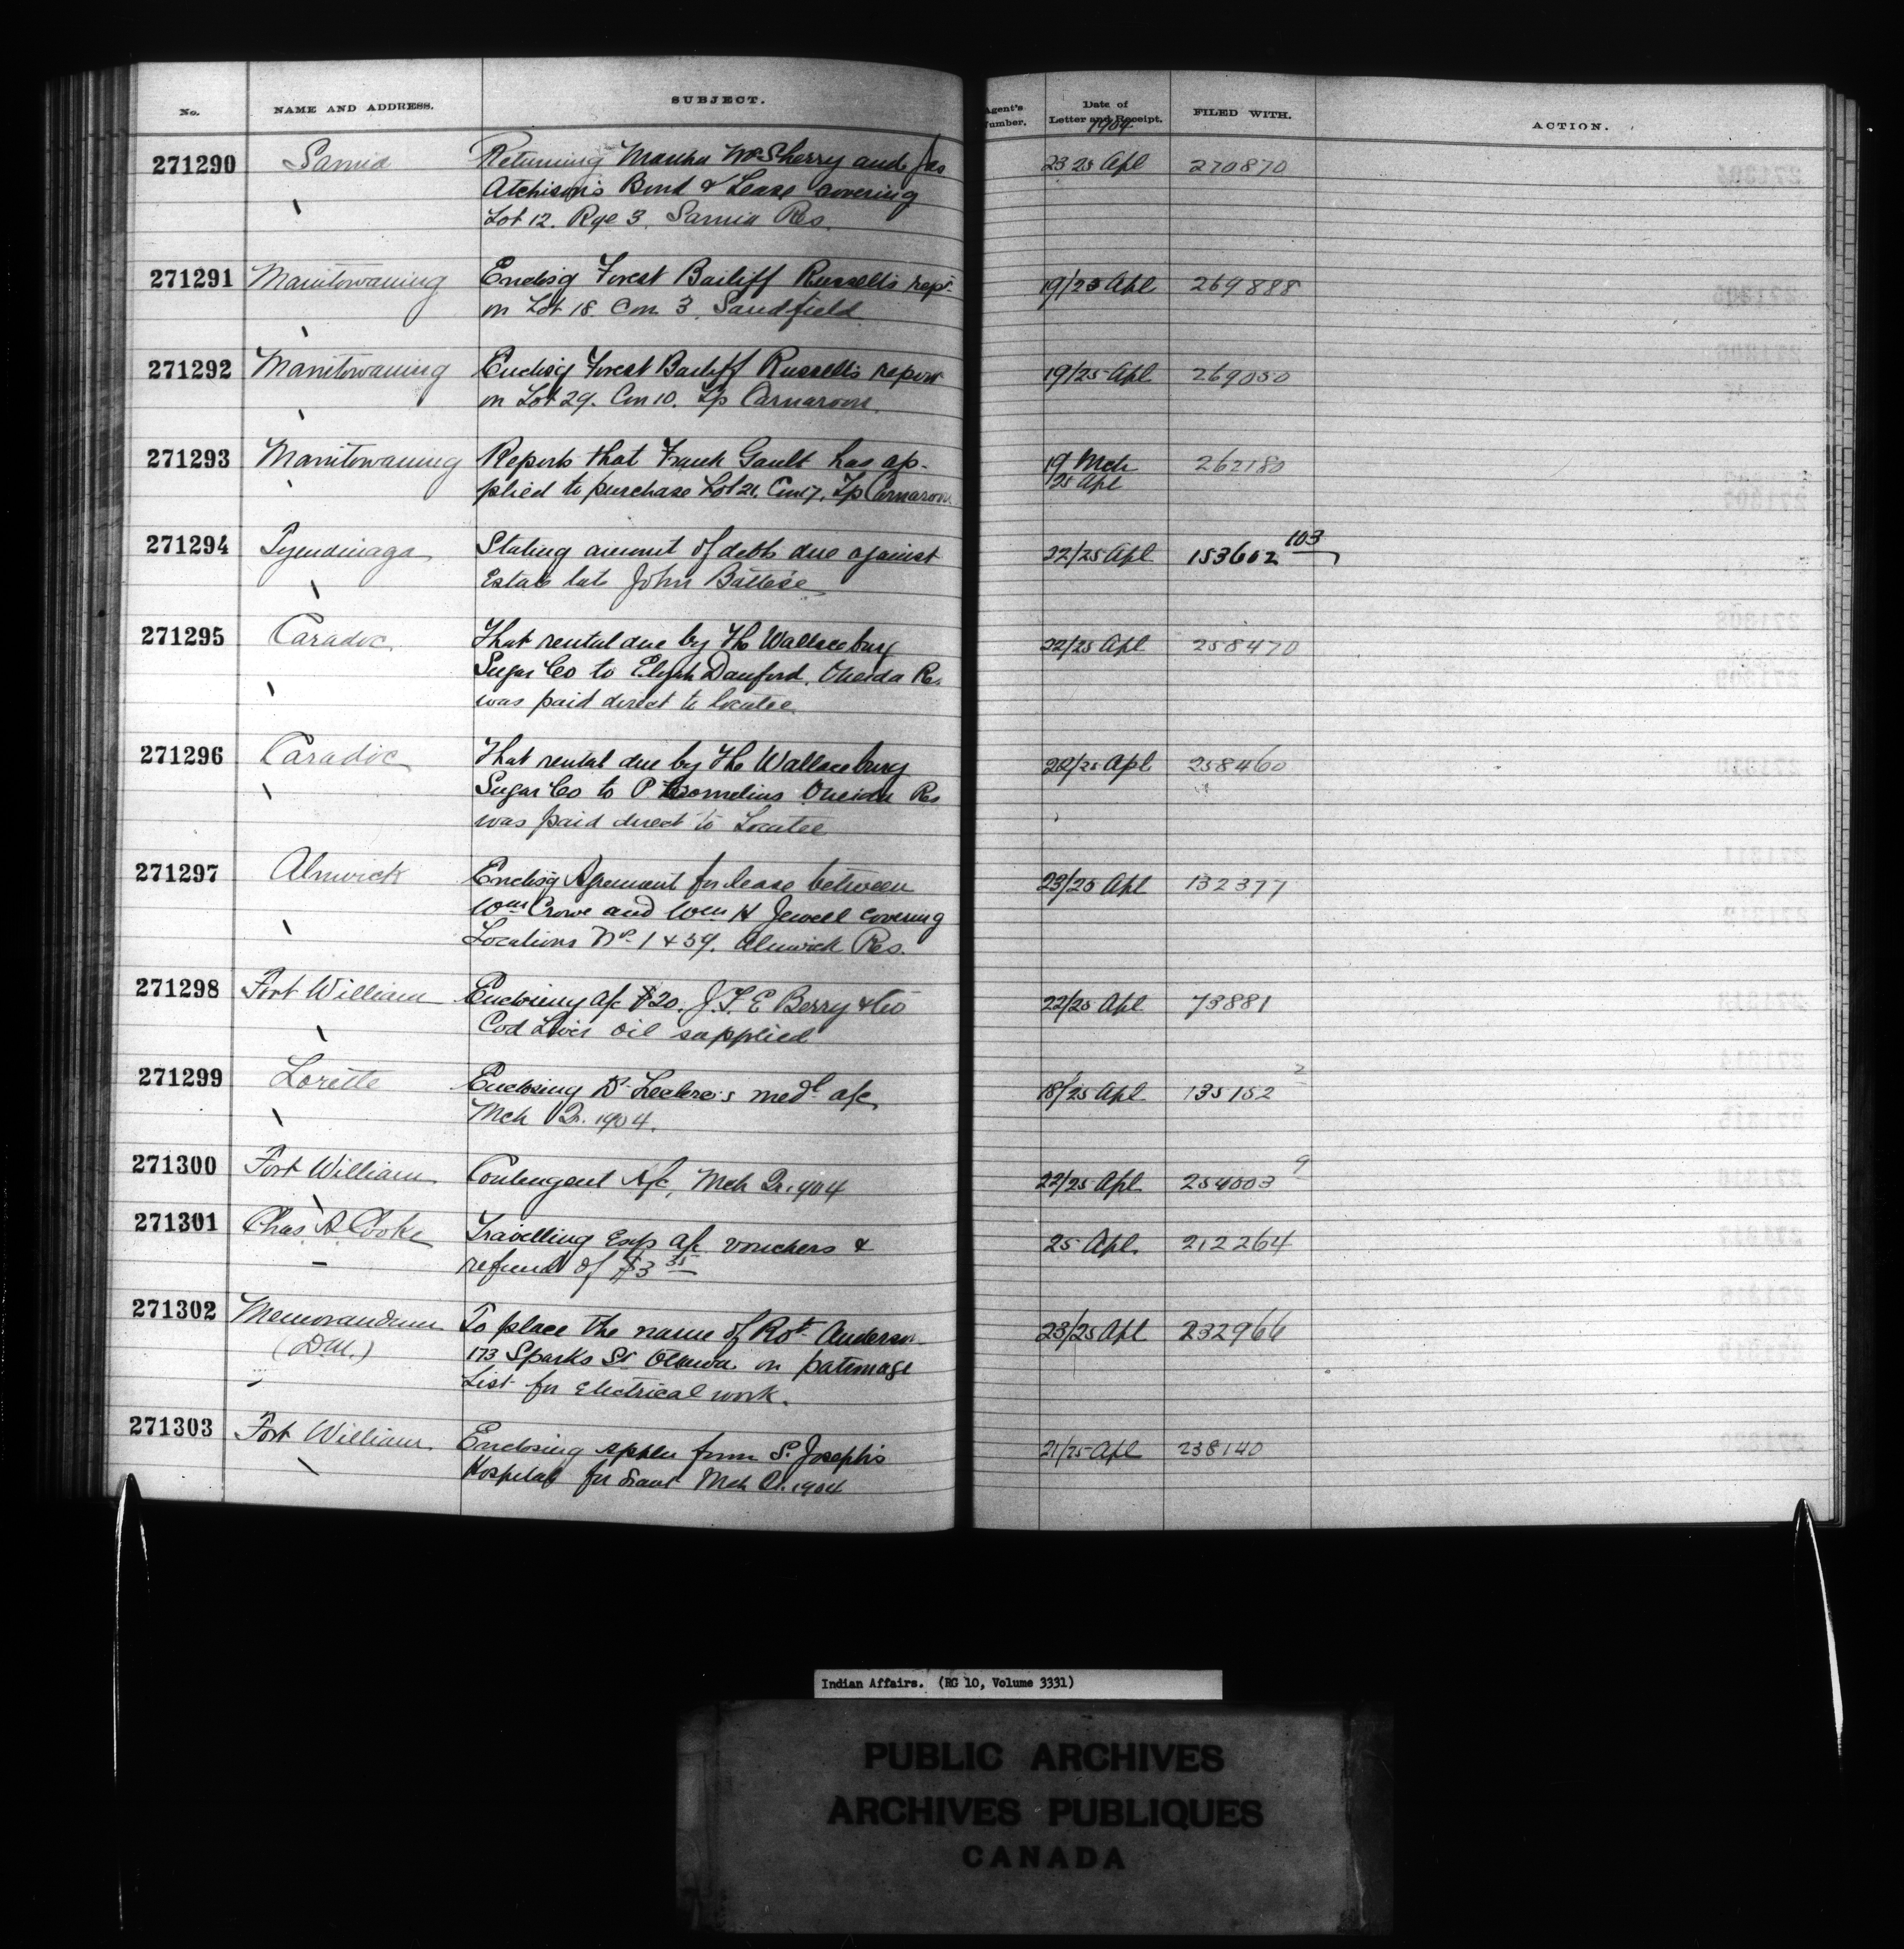 No. NAME AND ADDRESS. SUBJECT. Agent's Number. Date of Letter and Receipt. 1904 FILED WITH. ACTION.
271290 Sarnia Returning Martha McSherry and Jas 23 25 Apl 270870
Atchison's Bond & Lease covering
Lot 12. Rge 3. Sarnia Res.
271291 Manitowaning Enclos'g Forest Bailiff Russell's rept 19/25 Apl 269888
on Lot 18. Con 3, Sandfield
271292 Manitowaning Enclos'g Forest Bailiff Russell's report 19/25 Apl 269050
on Lot 29. Con 10. Tp Carnarvon.
271293 Manitowaning Reports that Frank Gault has ap- 19 Mch 262180
plied to purchase Lot 21. Con 7. Tp Carnarvon 25 Apl
271294 Tyendinaga Stating amount of debts due against 22/25 Apl 153602 103
Estate late John Battese
271295 Caradoc. That rental due by the Wallaceburg 22/25 Apl 258470
Sugar Co to Elijah Danford. Oneida Res
was paid direct to locatee
271296 Caradoc That rental due by the Wallaceburg 22/25 Apl 258460
Sugar Co to P Cornelius Oneida Res
was paid direct to Locatee
271297 Alnwick Enclos'g Agreement for lease between 23/25 Apl 132377
Wm Crowe and Wm H Jewell covering
Locations No. 1 & 59. Alnwick Res.
271298 Fort William Enclosing a/c $20. J.F.E Berry & Co 22/25 Apl 73881
Cod Liver Oil supplied
271299 Lorette Enclosing Dr Leclerc's medl a/c 18/25 Apl 135152 2
Mch Qr. 1904.
271300 Fort William Contingent A/c, Mch Qr. 904 22/25 Apl 254003 9
271301 Chas. A. Cooke Travelling Exps a/c vouchers & 25 Apl. 212264
refund of $3 35
271302 Memorandum To place the name of Robt Anderson 23/25 Apl 232966
(D.M.) 173 Sparks St Ottawa on patronage
List for electrical work.
271303 Fort William Enclosing appln from St. Joseph's 21/25 Apl 238140
Hospital for Grant Mch Qr. 1904
Indian Affairs. (RG 10, Volume 3331)
PUBLIC ARCHIVES
ARCHIVES PUBLIQUES
CANADA